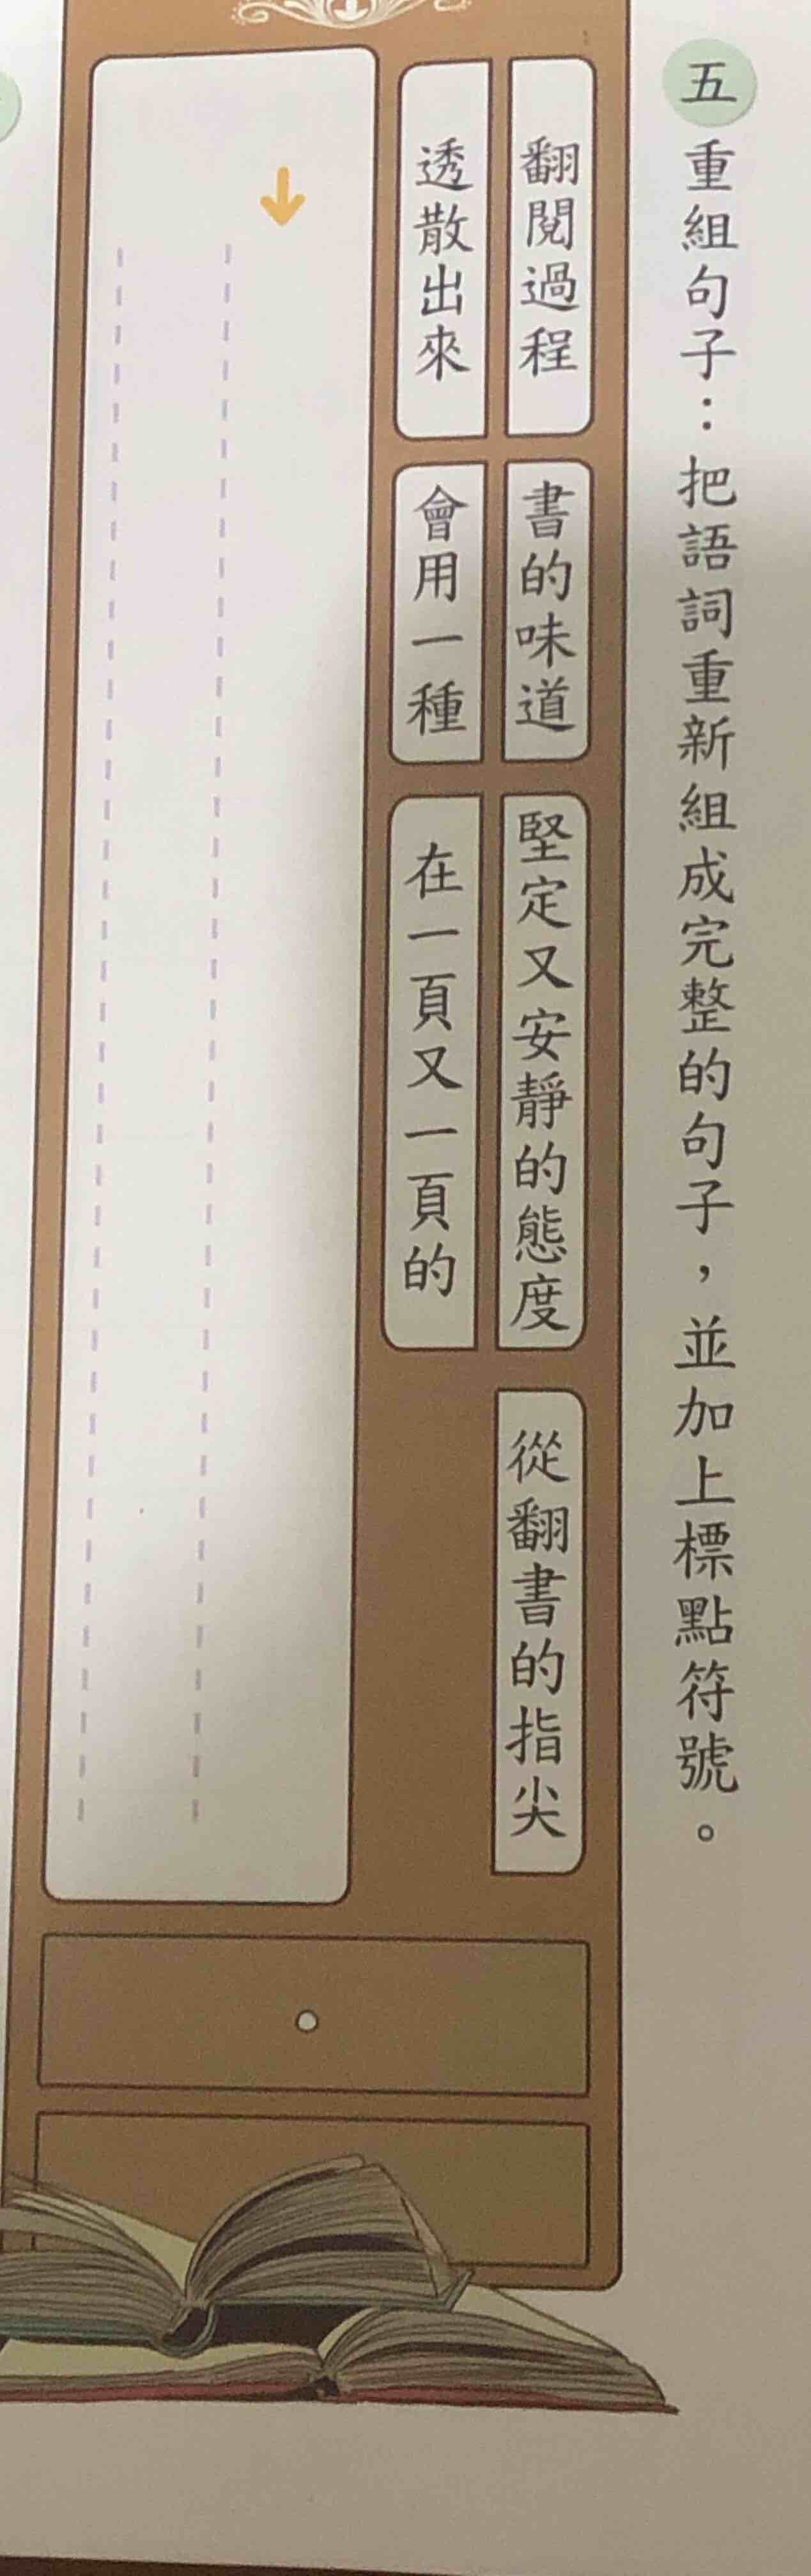 五 重組句子：把語詞重新組成完整的句子，並加上標點符號。
翻閱過程
書的味道
堅定又安靜的態度
從翻書的指尖
透散出來
會用一種
在一頁又一頁的